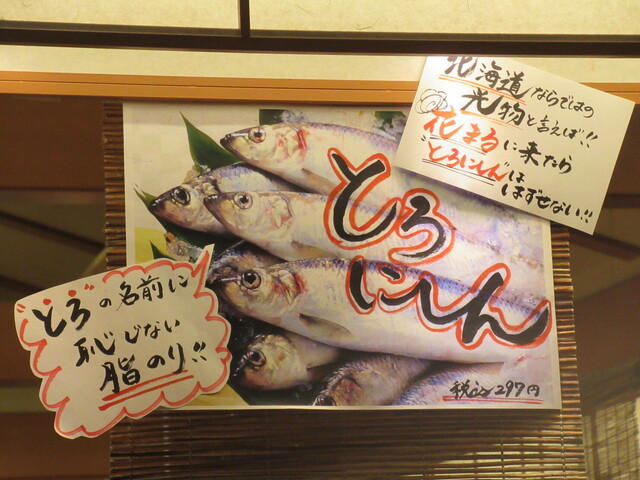 北海道ならではの
光物と言えば!!
花まるに来たら
"とろにしん"は
はずせない!!
とろ
にしん
"とろ"の名前に
恥じない
脂のり!!
税込297円